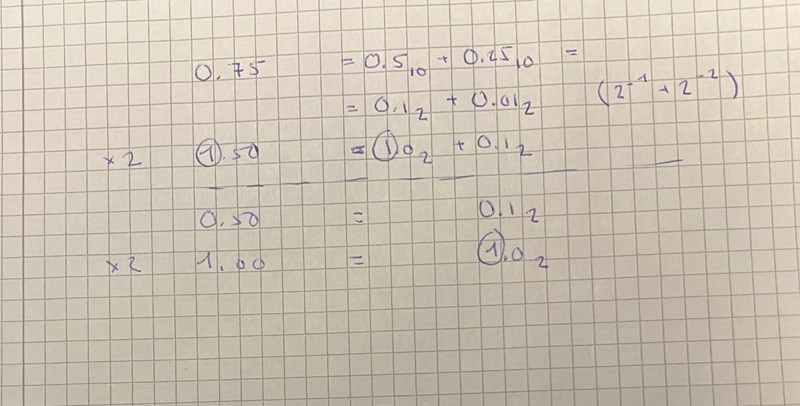 0.75 = 0.5₁₀ + 0.25₁₀ =
= 0.1₂ + 0.01₂ (2⁻¹ + 2⁻²)
×2 1.50 = 1.0₂ + 0.1₂
0.50 = 0.1₂
×2 1.00 = 1.0₂